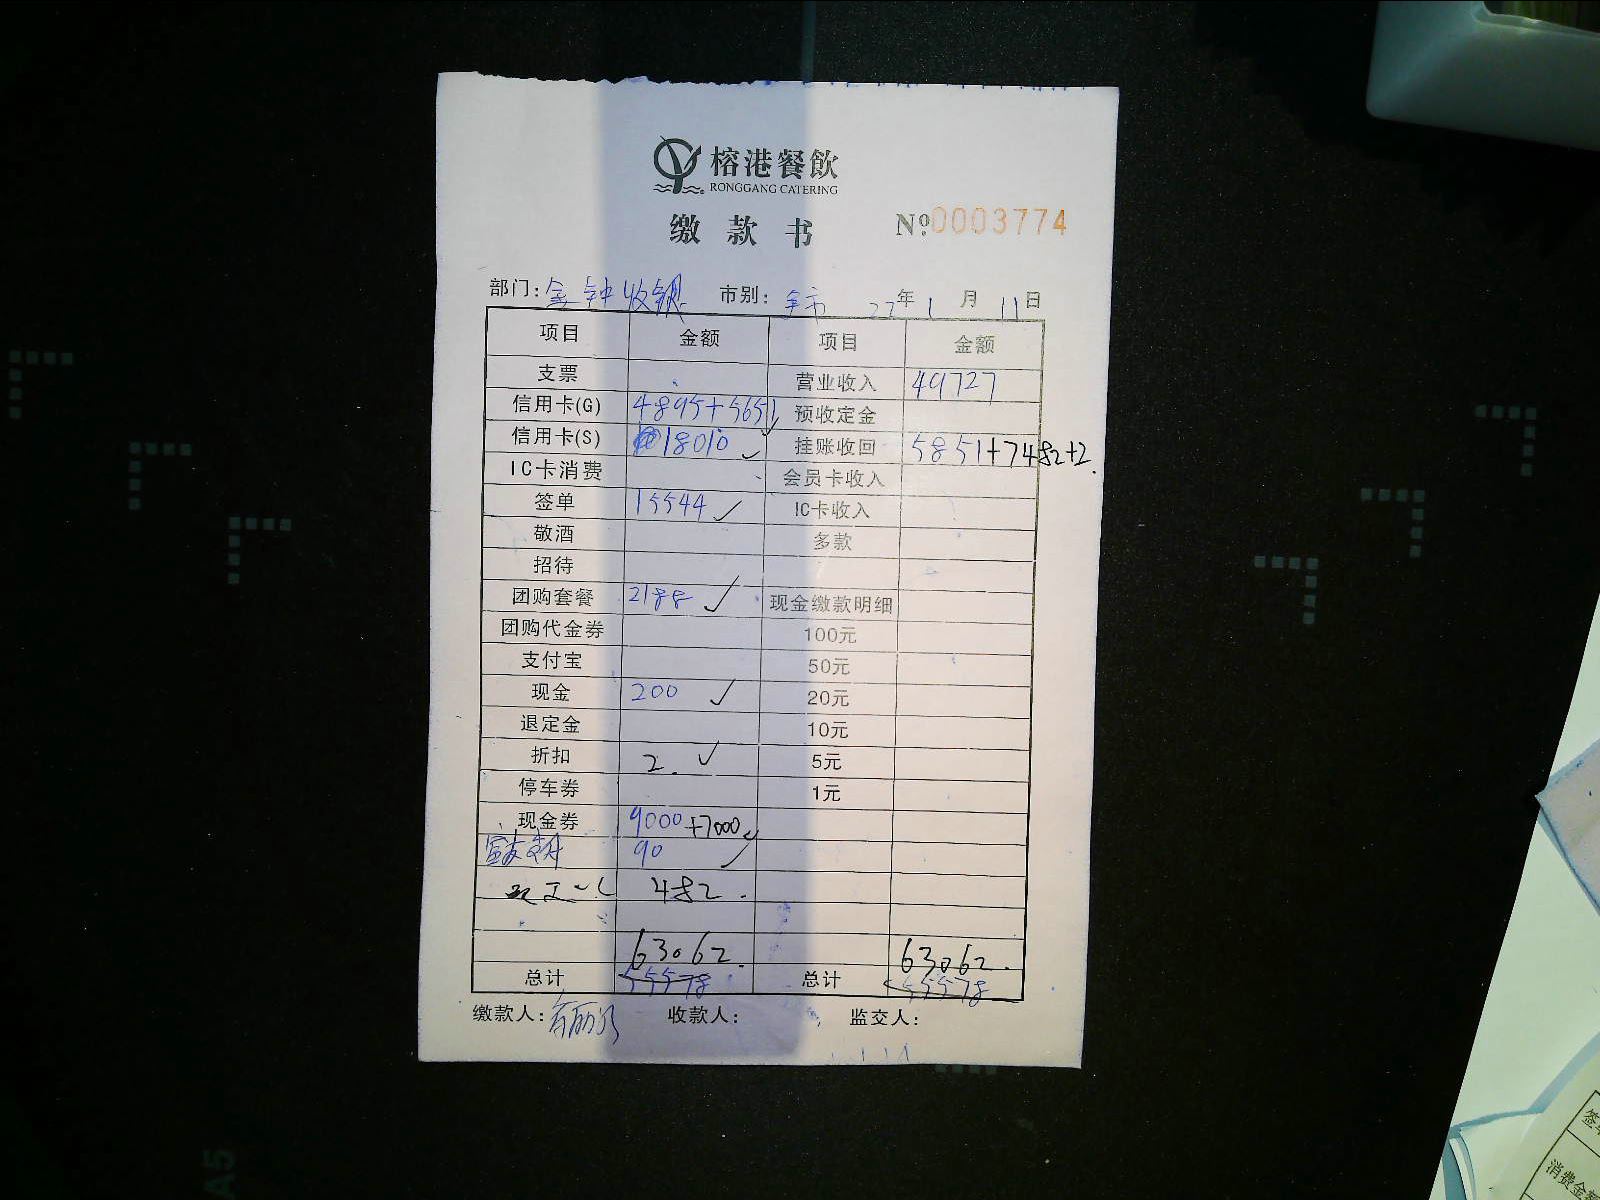 榕港餐飲
RONGGANG CATERING
缴款书 №0003774
部门:金钟收银 市别: 22年1月11日
项目 金额 项目 金额
支票 营业收入 49727
信用卡(G) 4895+5651 预收定金
信用卡(S) 18010 挂账收回 5851+7482+2.
IC卡消费 会员卡收入
签单 15544 IC卡收入
敬酒 多款
招待
团购套餐 2188 现金缴款明细
团购代金券 100元
支付宝 50元
现金 200 20元
退定金 10元
折扣 2. 5元
停车券 1元
现金券 9000+7000
90
482.
63062. 63062.
总计 55578 总计 55578
缴款人: 收款人: 监交人:
A5
签单
消费金额